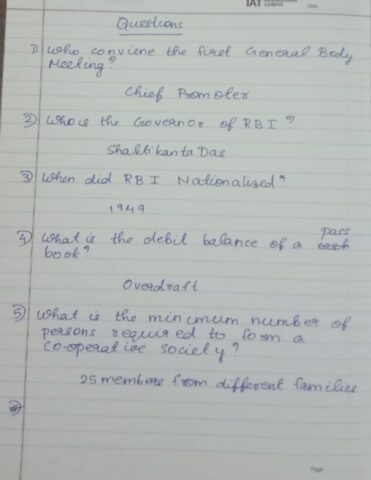 IAT
CAMPUS
Date
Questions
1) Who conviene the first General Body
Meeting?
Chief Promoter
2) Who is the Governor of RBI ?
Shaktikanta Das
3) When did RBI Nationalized ?
1949
4) What is the debit balance of a pass
book?
Overdraft
5) What is the minimum number of
persons required to form a
Co-operative society ?
25 members from different families
Page